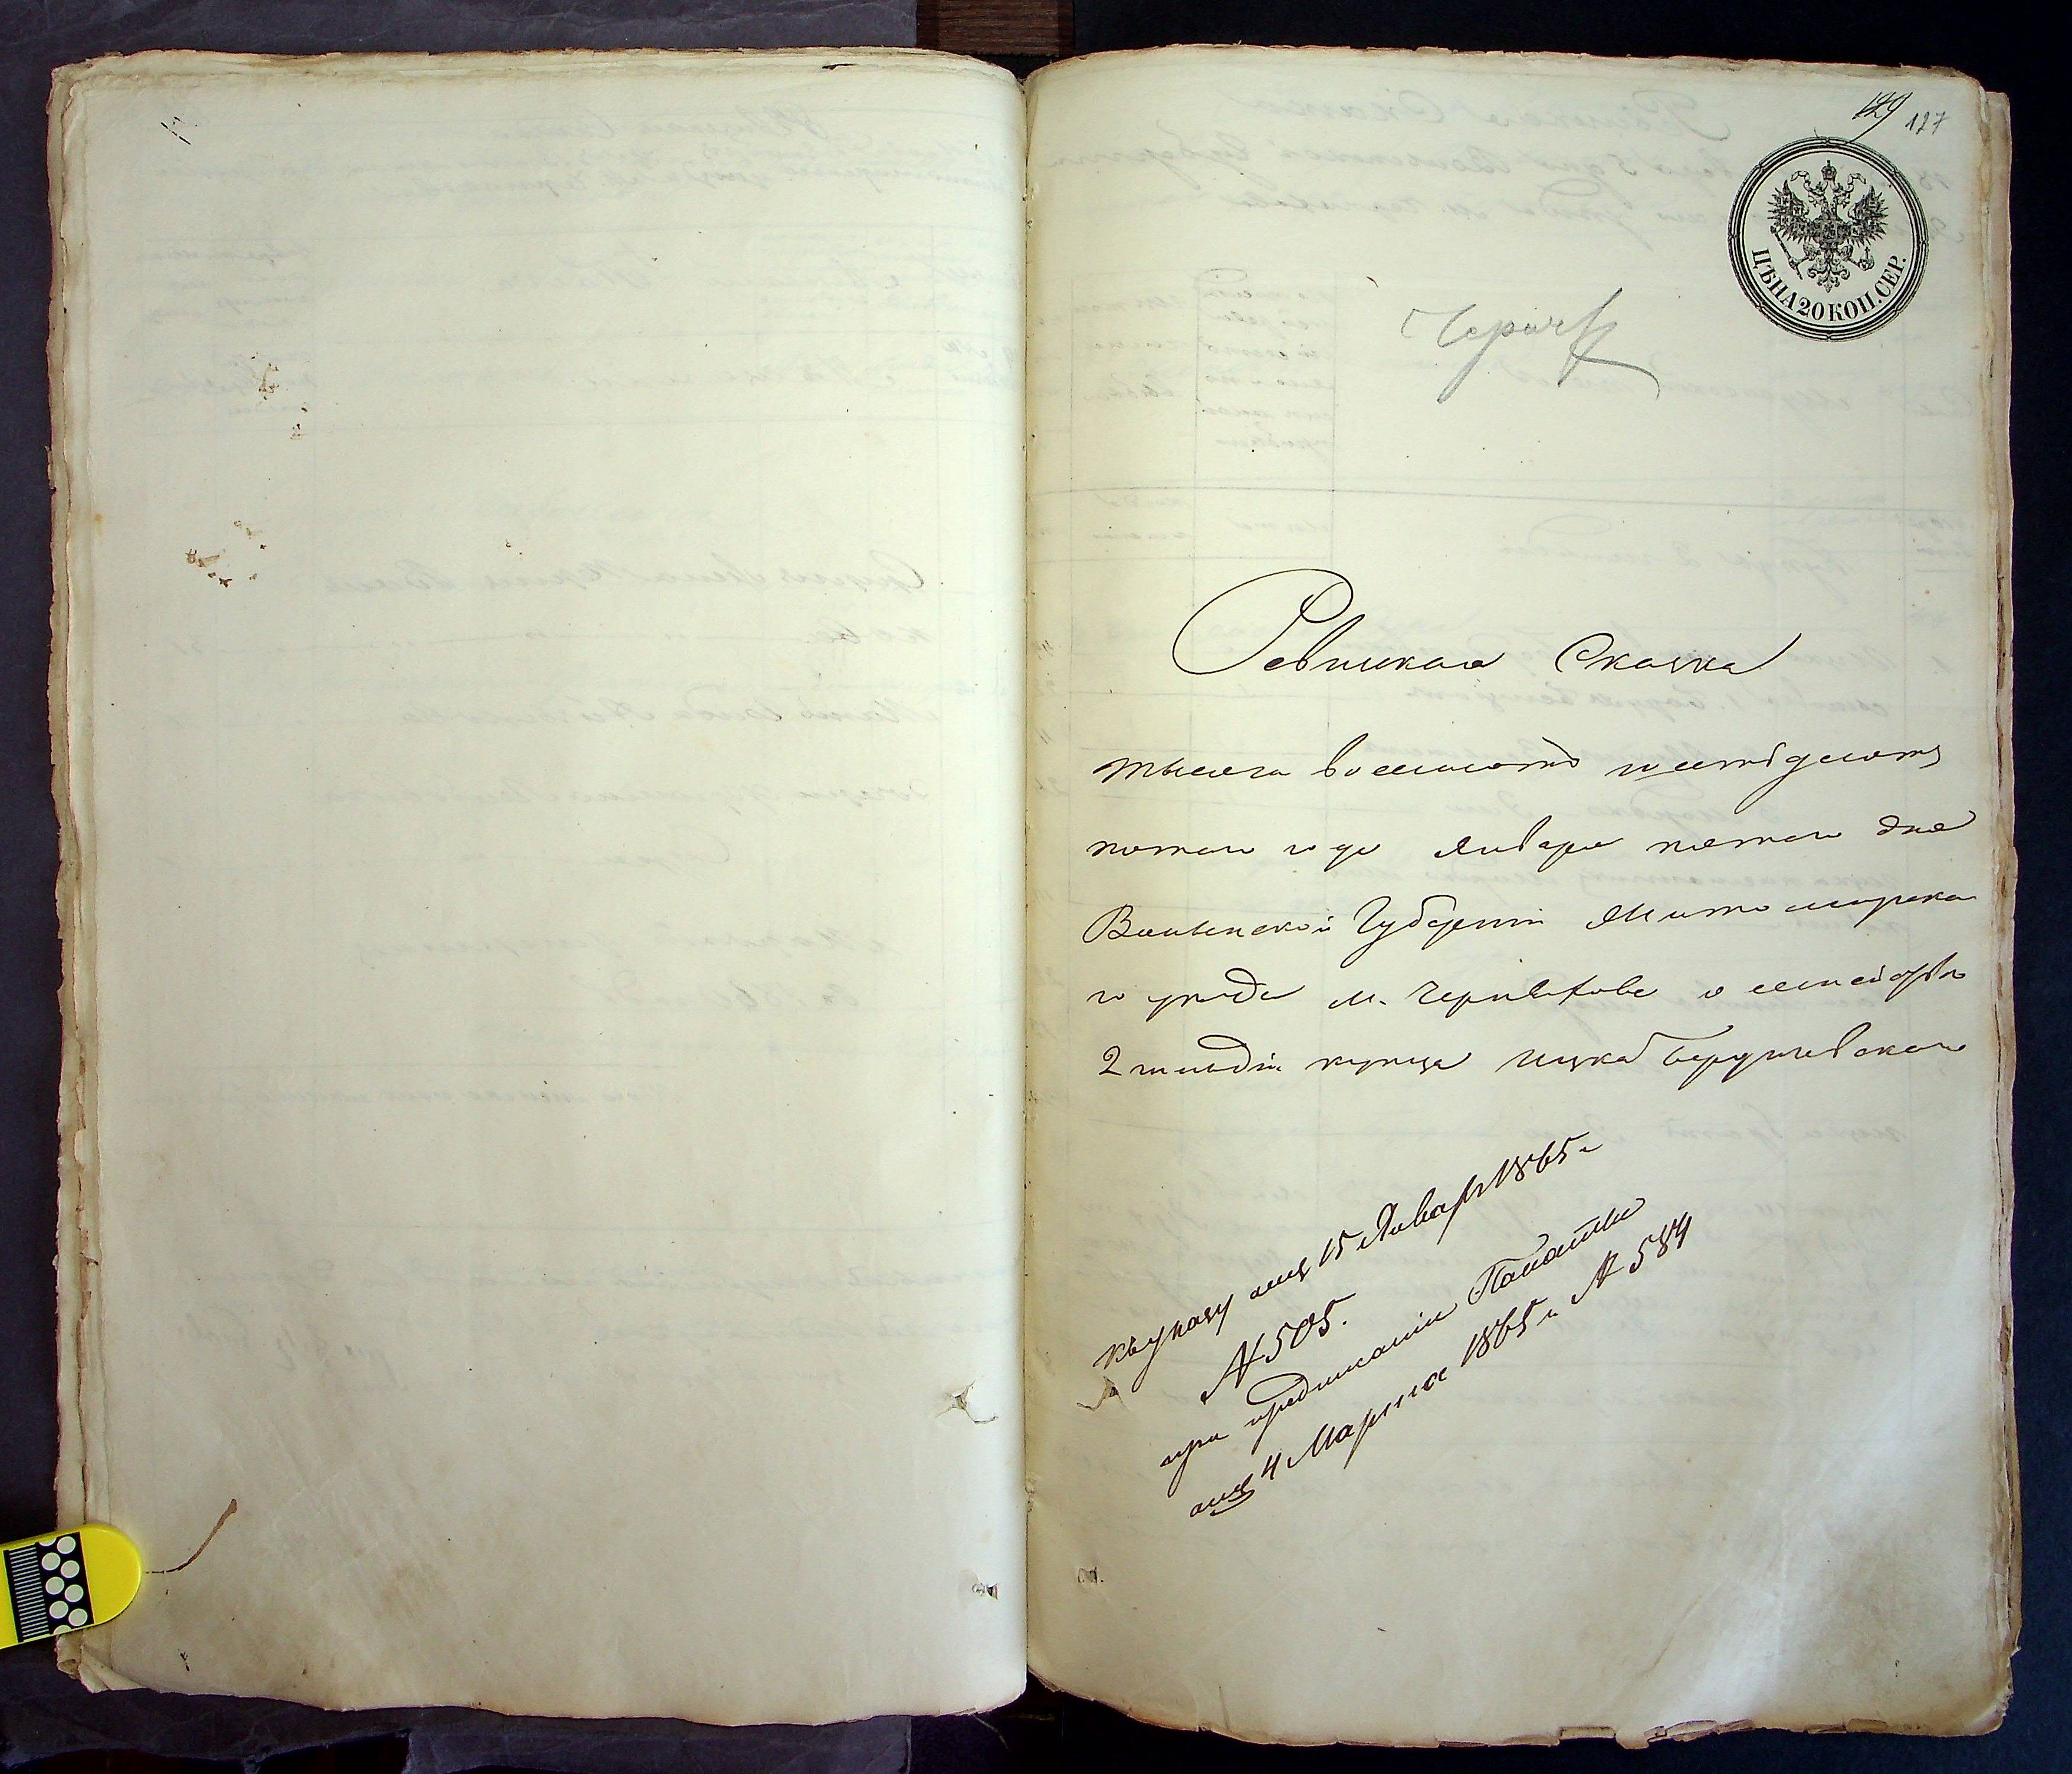 129 127
ЦѢНА 20 КОП. СЕР.
Черня
Ревизская Сказка
тысяча восемьсотъ шестьдесятъ
пятаго года Января пятаго дня
Волынской Губерніи Житомирска
го уѣзда м. Черняхова о семействѣ
2 гильдіи купца Ицка Бердичевскаго
Къ указу отъ 15 Января 1865 г.
№ 505.
при предписаніи Палаты
отъ 4 Марта 1865 г. № 584